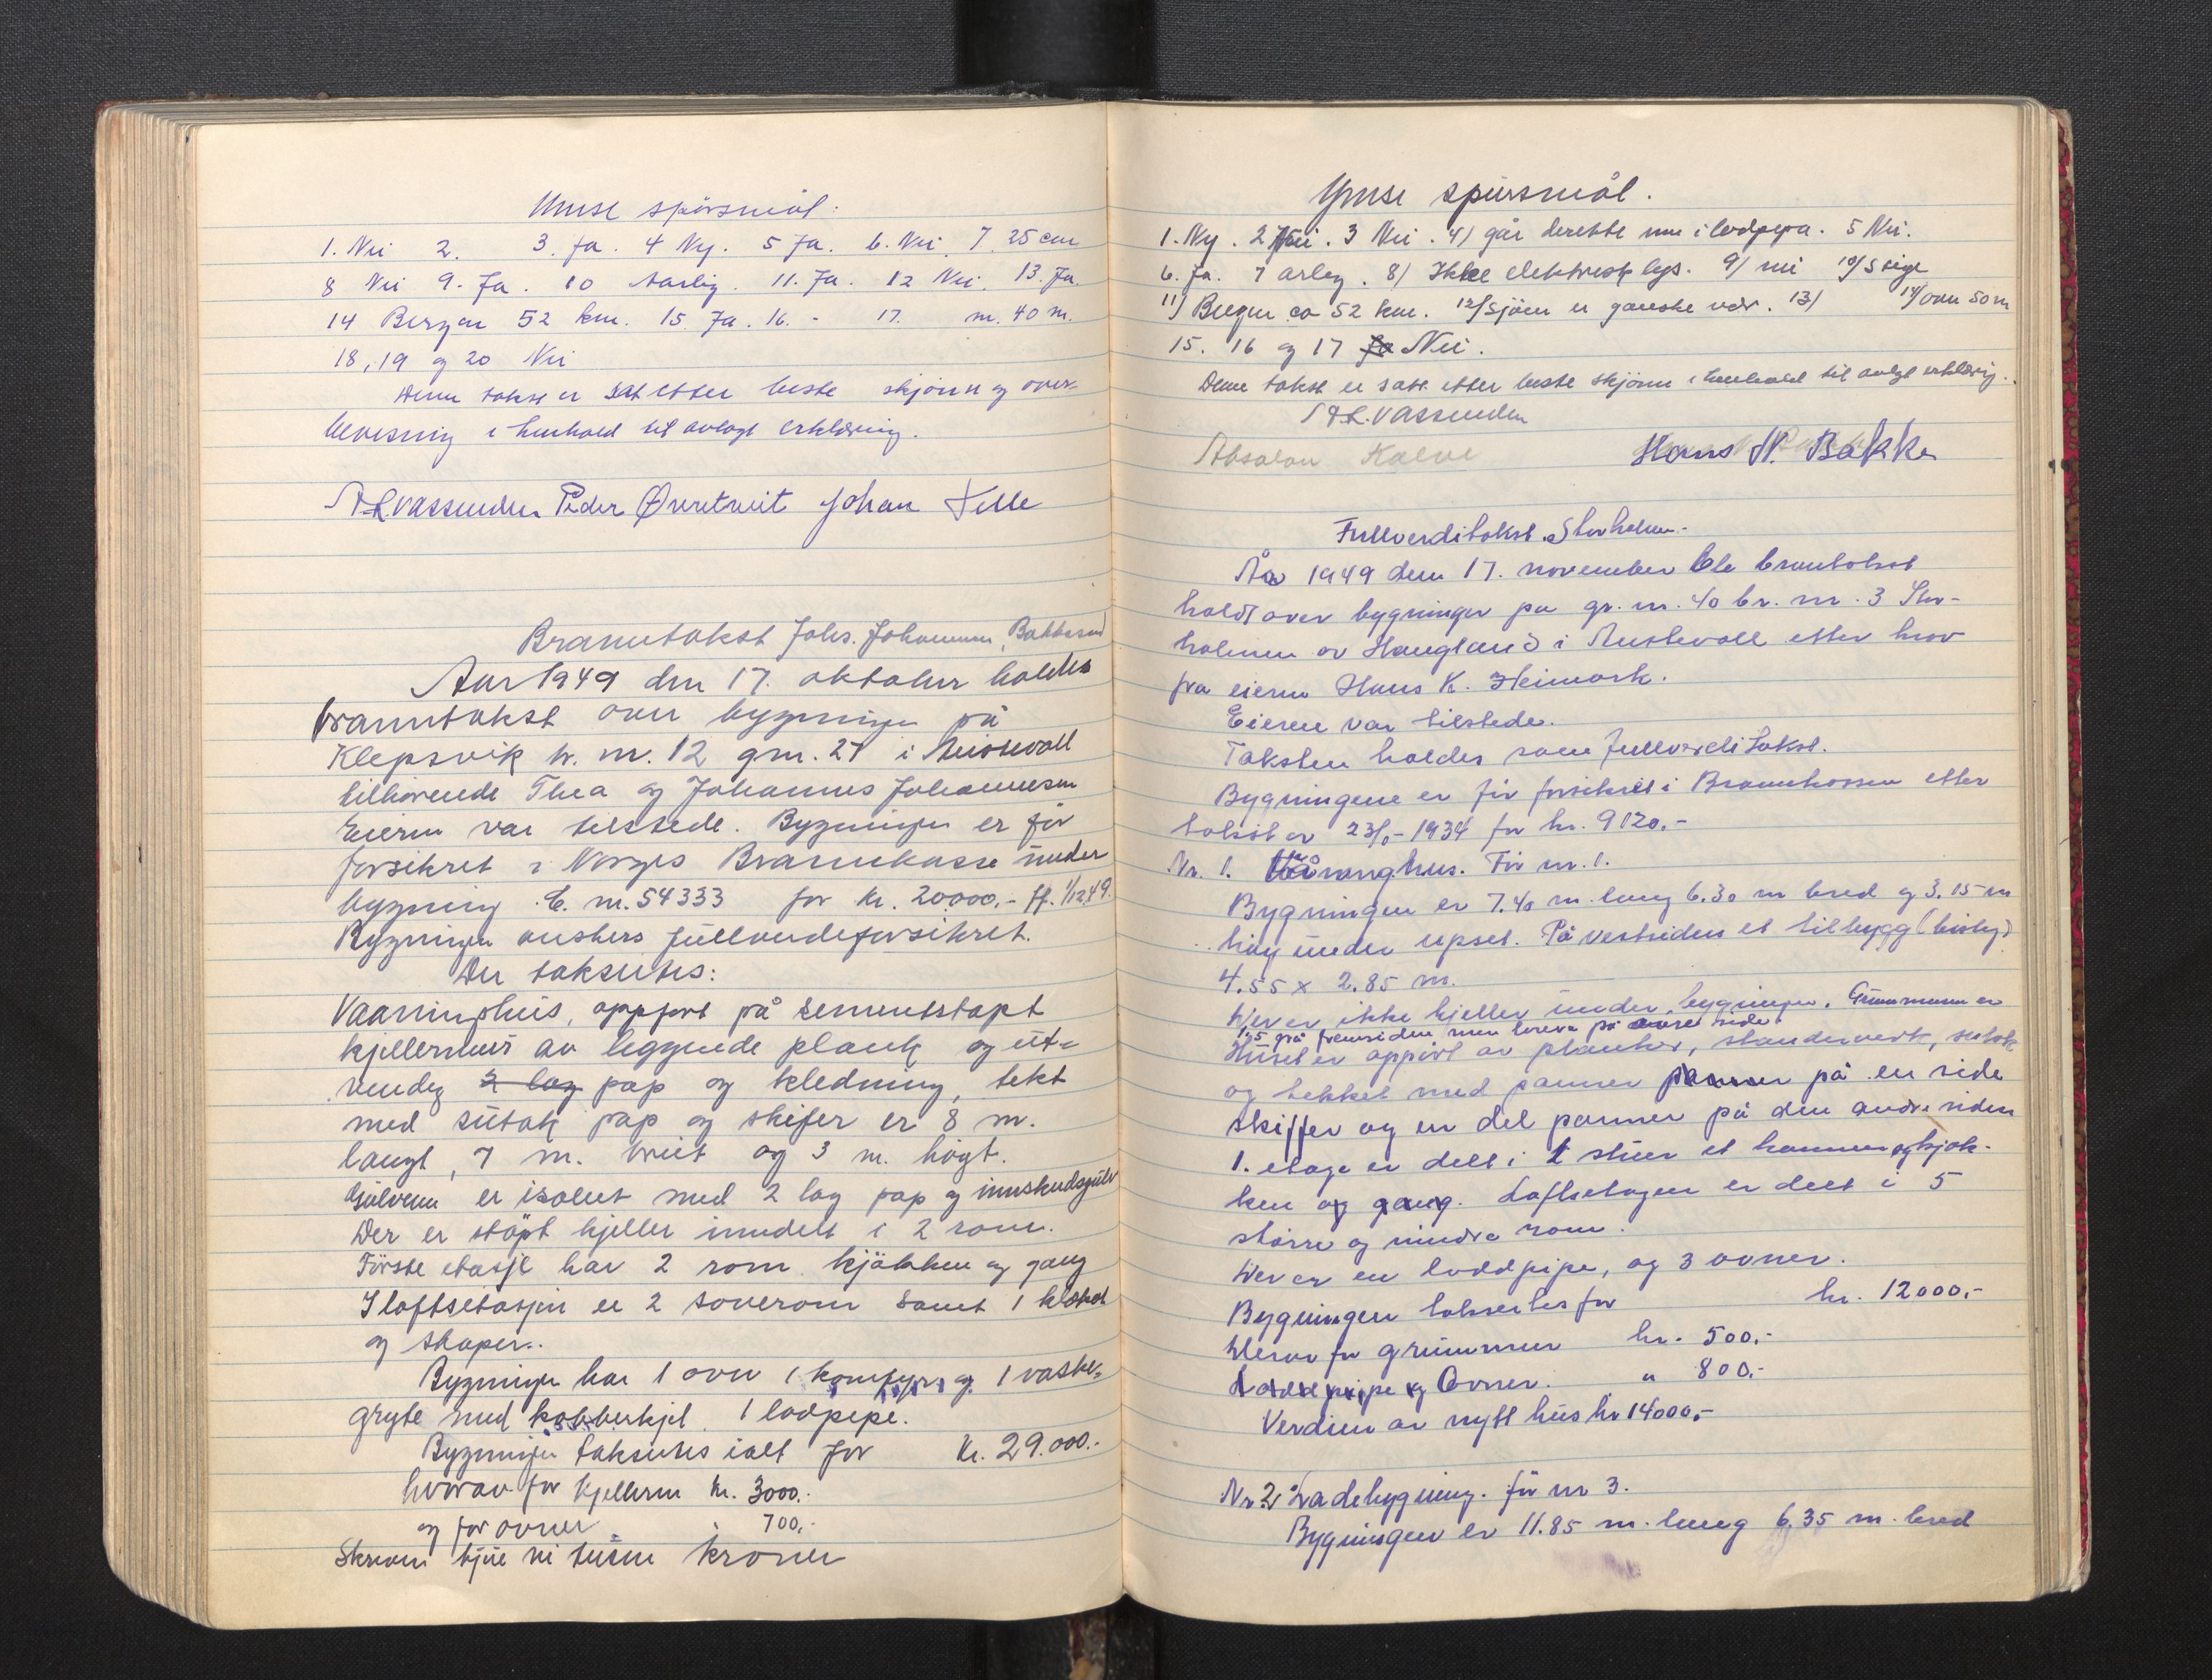 Ymse spørsmål.
1. Nei 2. 3. Ja. 4 Ny. 5 Ja. 6. Nei. 7. 25 cm
8 Nei 9. Ja. 10 Aarlig. 11. Ja. 12 Nei. 13. Ja.
14 Bergen 52 km. 15. Ja. 16. - 17. m. 40 m.
18, 19 og 20 Nei
Denne takst er satt etter beste skjønn og over-
bevisning i henhold til avlagt erklæring.
A.L. Vassenden Peder Øvretveit Johan
Branntakst Johs. Johannessen, Bakkasund
Aar 1949 den 17. oktober holdtes
branntakst over bygningen på
Klepsvik br. nr. 12 gnr. 27 i Austevoll
tilhørende Thea og Johannes Johannessen
Eieren var tilstede. Bygningen er før
forsikret i Norges Brannkasse under
bygning nr. 54333 for kr. 20.000,- ff. 1/12 49.
Bygningen ønskes fullverdeforsikret.
Der takseres:
Vaaningshus, oppført på sementstøpt
kjellermur av liggende plank og ut-
vendig 2 lag pap og kledning, tekt
med sutak pap og skifer er 8 m.
langt, 7 m. breit og 3 m. høgt.
Gulvene er isolert med 2 lag pap og innskudsgulv
Der er støpt kjeller inndelt i 2 rom.
Første etasje har 2 rom kjøkken og gang
I loftsetasjen er 2 soverom samt 1 klosett
og skaper.
Bygningen har 1 ovn 1 komfyr og 1 vaske-
gryte med kobberkjel. 1 lodpipe.
Bygningen takseres ialt for kr. 29.000.-
hvorav for kjelleren kr. 3000,-
og for ovner " 700,-
Skriver tjue ni tusen kroner
Ymse spørsmål.
1. Ny. 2 Nei. 3 Nei. 4) går direkte inn i lodpipa. 5 Nei.
6. Ja. 7 årleg. 8) Ikke elektrisk lys. 9) nei 10) Stige
11) Bergen ca 52 km. 12) Sjøen er ganske nær. 13) 14) over 50 m
15. 16 og 17 Ja Nei.
Denne takst er satt etter beste skjønn i henhold til avlagt erklæring.
A.L. Vassenden
Absalon Kalve Hans N. Bakke
Fullverditakst Storholmen.-
År 1949 den 17. november ble branntakst
holdt over bygninger på gr. nr. 40 br. nr. 3 Stor-
holmen av Haugland i Austevoll etter krav
fra eieren Hans K. Heimark.
Eieren var tilstede.
Taksten holdes som fullverditakst.
Bygningene er før forsikret i Brannkassen etter
takst av 23/ - 1934 for kr. 9120.-
Nr. 1. Våningshus. Før nr. 1.
Bygningen er 7.40 m lang 6.30 m bred og 3.15 m
høy under upset. På vestsiden et tilbygg (bisleg)
4.55 x 2.85 m.
Der er ikke kjeller under bygningen. Grunnmuren er
1,5 på fremsiden men lavere på øvre side
Huset er oppført av planker, standerverk, sutak
og tekket med panner panner på en side
skiffer og en del panner på den andre siden
1. etage er delt i 1 stuer et kammer og kjøk-
ken og gang. Loftsetagen er delt i 5
større og mindre rom.
Der er en loddpipe, og 3 ovner.
Bygningen takseres for kr. 12000.-
Herav for grunnmur kr. 500.-
Loddpipe og Ovner. " 800.-
Verdien av nytt hus kr 14000,-
Nr. 2 Ladebygning. før nr 3.
Bygningen er 11.85 m. lang 6.35 m. bred